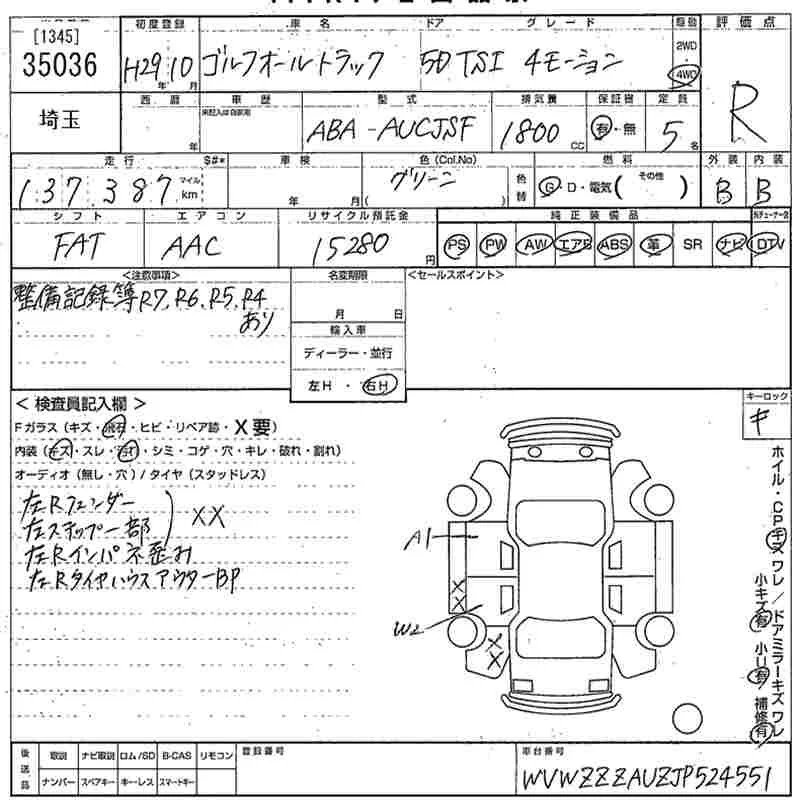 [1345]
35036
初度登録
車名
ドア
グレード
駆動
評価点
H29年10月
ゴルフオールトラック
5D TSI 4モーション
2WD
4WD
R
埼玉
西暦
年
車歴
未記入は自家用
型式
ABA-AUCJSF
排気量
1800cc
保証書
有・無
定員
5名
走行
S#*
137,387
マイル
km
車検
年 月
色(Col.No)
グリーン
( )
色替
燃料
G・D・電気( その他 )
外装
B
内装
B
シフト
FAT
エアコン
AAC
リサイクル預託金
15280円
純正装備品
PS
PW
AW
エアB
ABS
革
SR
ナビ
DTV
<注意事項>
整備記録簿R7、R6、R5、R4
あり
名変期限
月 日
輸入車
ディーラー・並行
左H・右H
<セールスポイント>
<検査員記入欄>
Fガラス(キズ・飛石・ヒビ・リペア跡・X要)
内装(キズ・スレ・汚れ・シミ・コゲ・穴・キレ・破れ・割れ)
オーディオ(無し・穴)/タイヤ(スタッドレス)
左Rフェンダー
左ステップ一部
XX
左Rインパネ歪み
左RタイヤハウスアウターBP
キーロック
キ
A1
XX
W2
XX
ホイル・CPキズワレ/ドアミラーキズワレ
小キズ有 小U有 補修有
後送品
取説
ナビ取説
ロム/SD
B-CAS
リモコン
ナンバー
スペアキー
キーレス
スマートキー
登録番号
車台番号
WVWZZZAUZJP524551